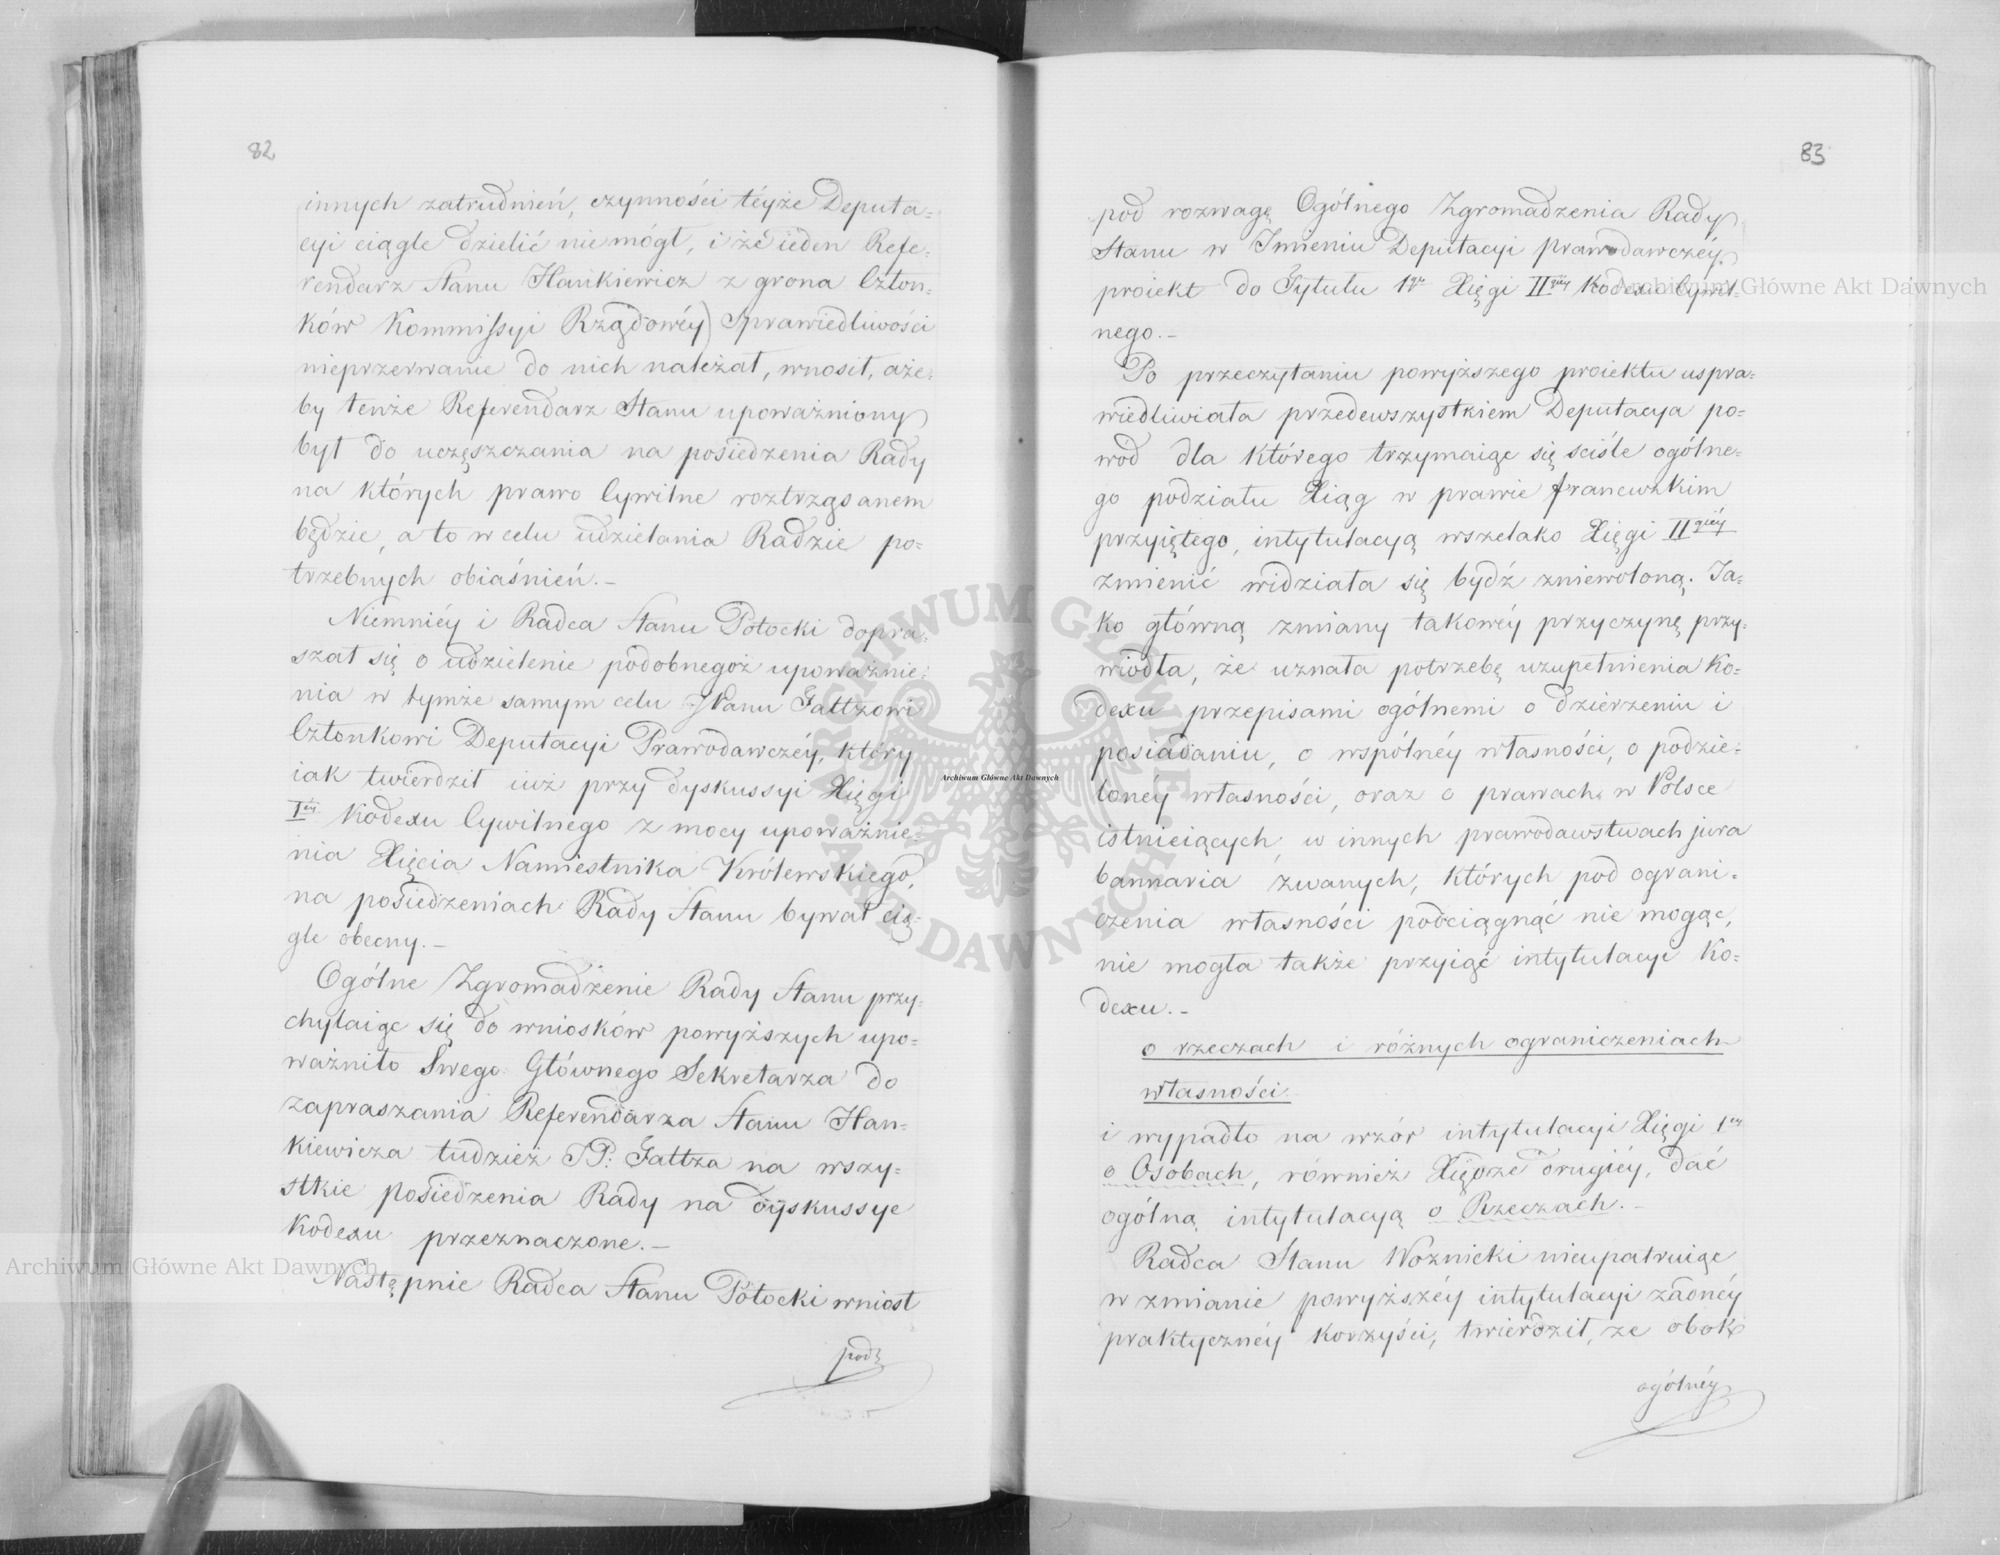 82
innych zatrudnień, czynności téyże Deputa=
cyi ciągle dzielić nie mógł, i że ieden Refe=
rendarz Stanu Hankiewicz z grona Człon=
ków Kommissyi Rządowéy Sprawiedliwości
nieprzerwanie do nich należał, wnosił, aże=
by tenże Referendarz Stanu upoważniony
był do uczęszczania na posiedzenia Rady
na których prawo Cywilne roztrząsanem
będzie, a to w celu udzielania Radzie po=
trzebnych obiaśnień.—
Niemniéy i Radca Stanu Potocki dopra=
szał się o udzielenie podobnegoż upoważnie=
nia w tymże samym celu JPanu Faltzowi
Członkowi Deputacyi Prawodawczéy, który
iak twierdził iuż przy dyskussyi Xięgi
I éy Kodexu Cywilnego z mocy upoważnie=
nia Xięcia Namiestnika Królewskiego,
na posiedzeniach Rady Stanu bywał cią=
gle obecny.—
Ogólne Zgromadzenie Rady Stanu przy=
chylaiąc się do wniosków powyższych upo=
ważniło Swego Głównego Sekretarza do
zapraszania Referendarza Stanu Han=
kiewicza tudzież JP: Faltza na wszy=
stkie posiedzenia Rady na dyskussye
Kodexu przeznaczone.—
Następnie Radca Stanu Potocki wniosł
pod
83
pod rozwagę Ogólnego Zgromadzenia Rady
Stanu w Imieniu Deputacyi prawodawczéy
proiekt do Tytułu 1go Xięgi II giéy Kodexu Cywil=
nego.—
Po przeczytaniu powyższego proiektu uspra=
wiedliwiała przedewszystkiem Deputacya po=
wod dla którego trzymaiąc się sciśle ogólne=
go podziału Xiąg w prawie francuzkim
przyiętego, intytulacyą wszelako Xięgi II giéy
zmienić widziała się bydź zniewoloną. Ja=
ko główną zmiany takowéy przyczynę przy=
wiodła, że uznała potrzebę uzupełnienia Ko=
dexu przepisami ogólnemi o dzierżeniu i
posiadaniu, o wspólnéy własności, o podzie=
lonéy własności, oraz o prawach w Polsce
istnieiących w innych prawodawstwach jura
bannaria zwanych, których pod ograni=
czenia własności podciągnąć nie mogąc,
nie mogła także przyiąć intytulacyi Ko=
dexu.—
o rzeczach i różnych ograniczeniach
własności.
i wypadło na wzór intytulacyi Xięgi 1 éy
o Osobach, również Xiędze drugiéy, dać
ogólną intytulacyą o Rzeczach.—
Radca Stanu Woznicki nieupatruiąc
w zmianie powyższéy intytulacyi żadnéy
praktycznéy korzyści, twierdził, że obok
ogólnéy
Archiwum Główne Akt Dawnych
Archiwum Główne Akt Dawnych
Archiwum Główne Akt Dawnych
ARCHIWUM GŁÓWNE
AKT DAWNYCH